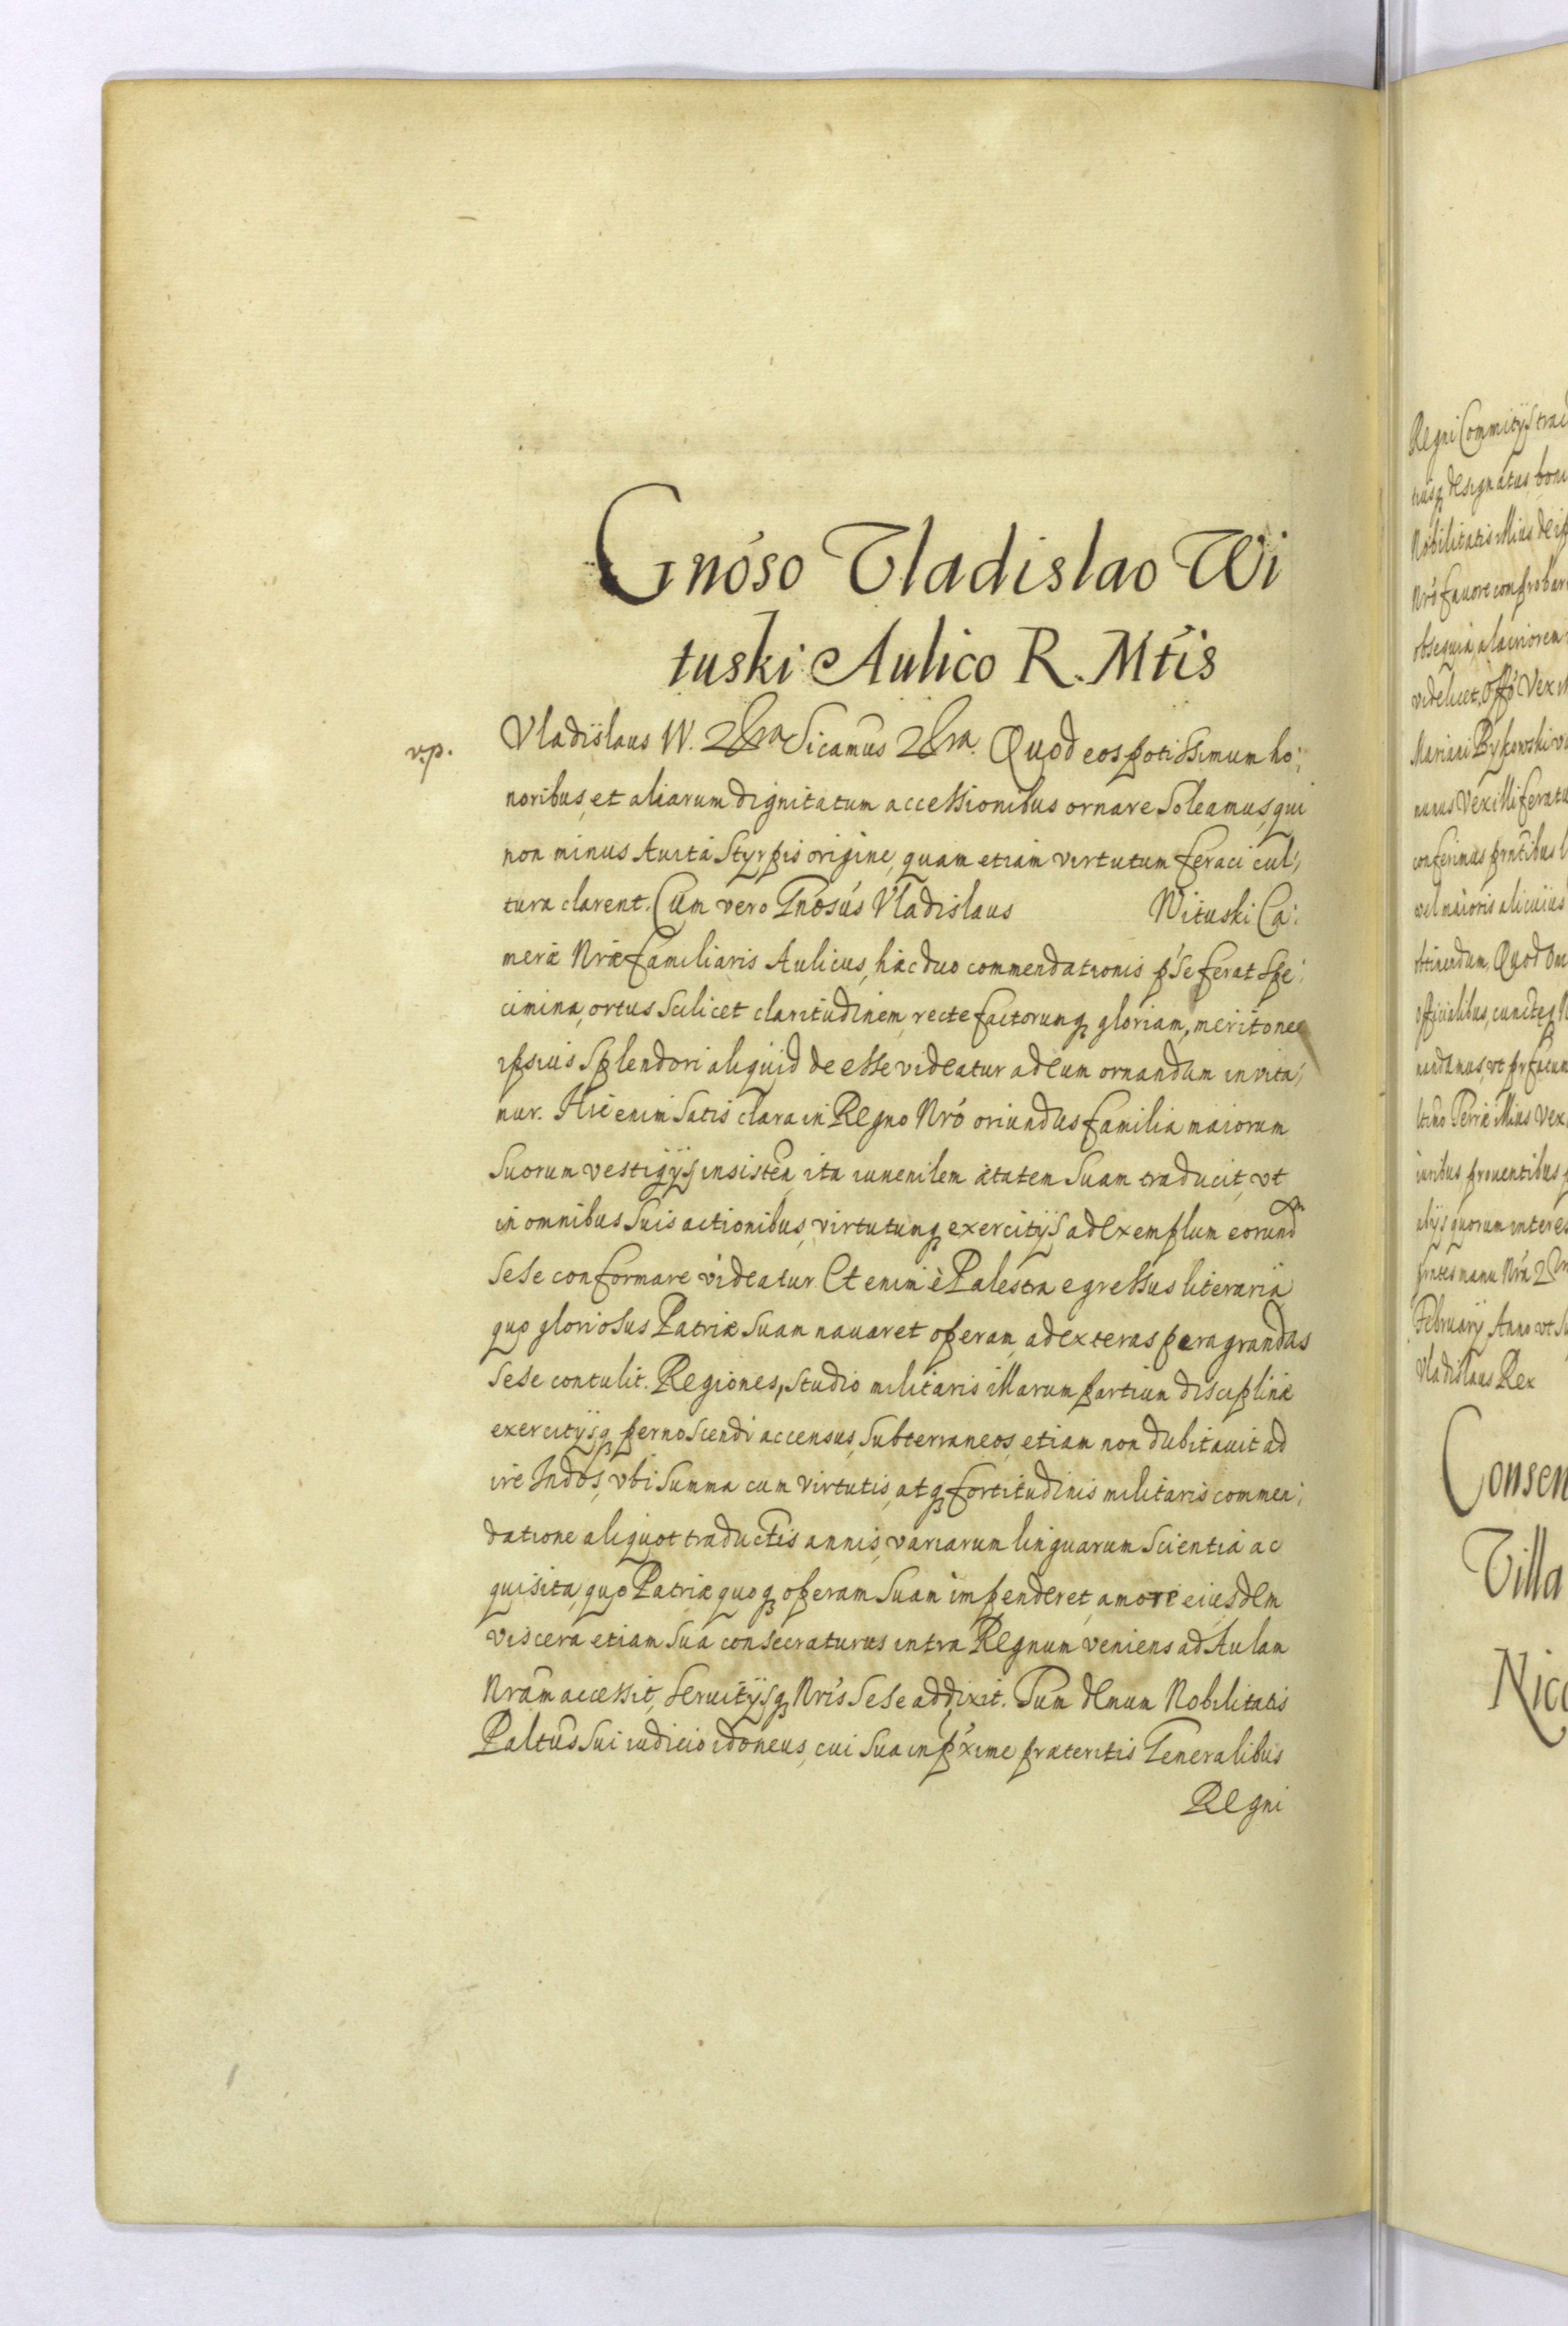 Gnóso Vladislao Wi
tuski Aulico R. Mtis
v.p.
Vladislaus W. Quod eos potissimum ho:
noribus, et aliarum dignitatum accessionibus ornare soleamus, qui
non minus Auita Styrpis origine, quam etiam virtutum feraci cul:
tura clarent. Cum vero Gnosus Vladislaus Wituski Ca:
meræ Nræ familiaris Aulicus, hæc duo commendationis p se ferat spe:
cimina, ortus scilicet claritudinem, recte factorumq gloriam, merito nec
ipsius splendori aliquid de esse videatur ad eum ornandum invita:
mur. Hic enim satis clara in Regno Nró oriundus familia maiorum
suorum vestigijs insisten, ita iuuenilem ætatem suam traducit, vt
in omnibus suis actionibus, virtutumq exercitijs ad exemplum eorund
sese conformare videatur. Et enim è Palestra egressus literaria
quo gloriosus Patriæ suam nauaret operam, ad exteras peragrandas
sese contulit. Regiones, studio militaris illarum partium disciplinæ
exercitijsq pernoscendi accensus, subterraneos, etiam non dubitauit ad
ire Indos, vbi summa cum virtutis, atq fortitudinis militaris commen:
datione aliquot traductis annis, variarum linguarum scientia ac
quisita, quo Patriæ quoq operam suam impenderet, amore eiusdem
viscera etiam sua consecraturus intra Regnum veniens ad Aulam
Nram accessit, seruitijsq Nris sese addixit. Tum demum Nobilitatis
sui iudicio idoneus, cui sua in pxime præteritis Generalibus
Regni
Regni Commitijs
designatus
Nobilitatis illius
Nró fauore
obsequia alacriorem
videlicet,
Mariani Bykowski
conferimus
vel maioris alicuius
obtinendum, Quod
officialibus,
Terræ illius
iuribus prouentibus
alijs quorum
manu Nrá
February Anno vt
Vladislaus Rex
Consen
Villa
Nico